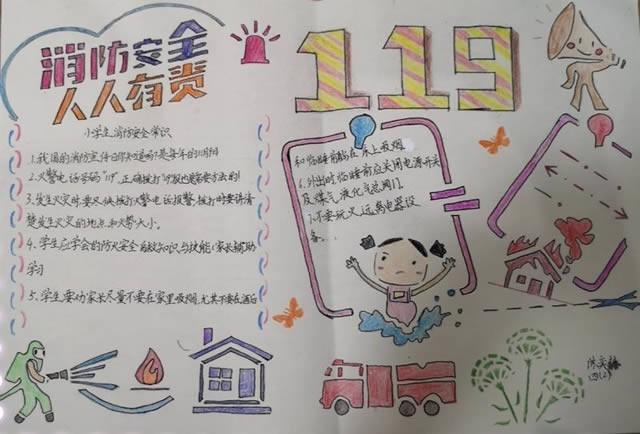 消防安全
人人有责
119
小学生消防安全常识
1.我国的消防宣传日是每年的11月9日
2.火警电话号码"119",正确拨打119报火警的方法的!
3.发生火灾时要尽快拨打火警电话报警,拨打时要讲清
楚发生火灾的地点和火势大小。
4.学生应学会的防火安全知识与技能(家长辅助
学习
5.学生要劝家长尽量不要在家里吸烟,尤其不要在酒后
和临睡前躺在床上吸烟
6.外出时临睡前应关闭电源开关
及煤气液化气总阀门
7.不要玩火远离电器设
备...
四(2)